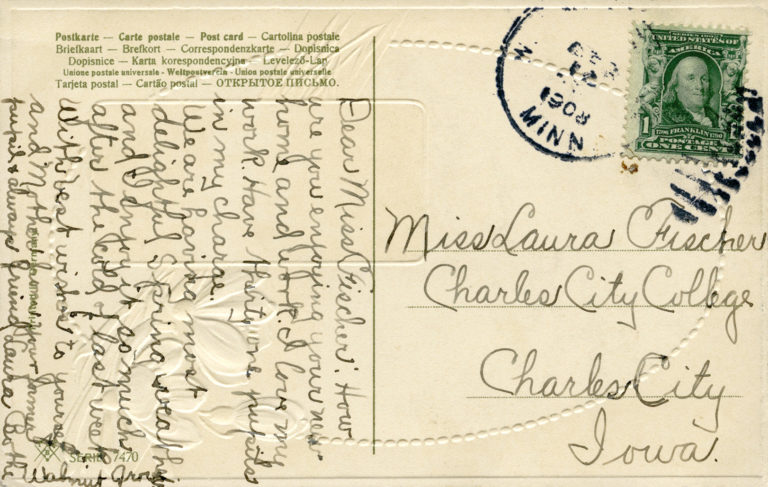 Postkarte — Carte postale — Post card — Cartolina postale
Briefkaart — Brefkort — Correspondenzkarte — Dopisnica
Dopisnice — Karta korespondencyjna — Levelező-Lap
Unione postale universale - Weltpostverein - Union postale universelle
Tarjeta postal — Cartão postal — ОТКРЫТОЕ ПИСЬМО.
Dear Miss Fischer: How
are you enjoying your new
home and work. I love my
work. Have thirty one pupils
in my charge.
We are having most
delightful Spring weather
and I enjoy it so much
after the cold of last week.
With best wishes to yourself
and Mother from your former
pupil & always friend, Laura
Walnut Grove
SERIE 7470
MINN
1908
SERIES 1902
UNITED STATES OF
AMERICA
1
1706 FRANKLIN 1790
POSTAGE
ONE CENT
Miss Laura Fischer
Charles City College
Charles City
Iowa.